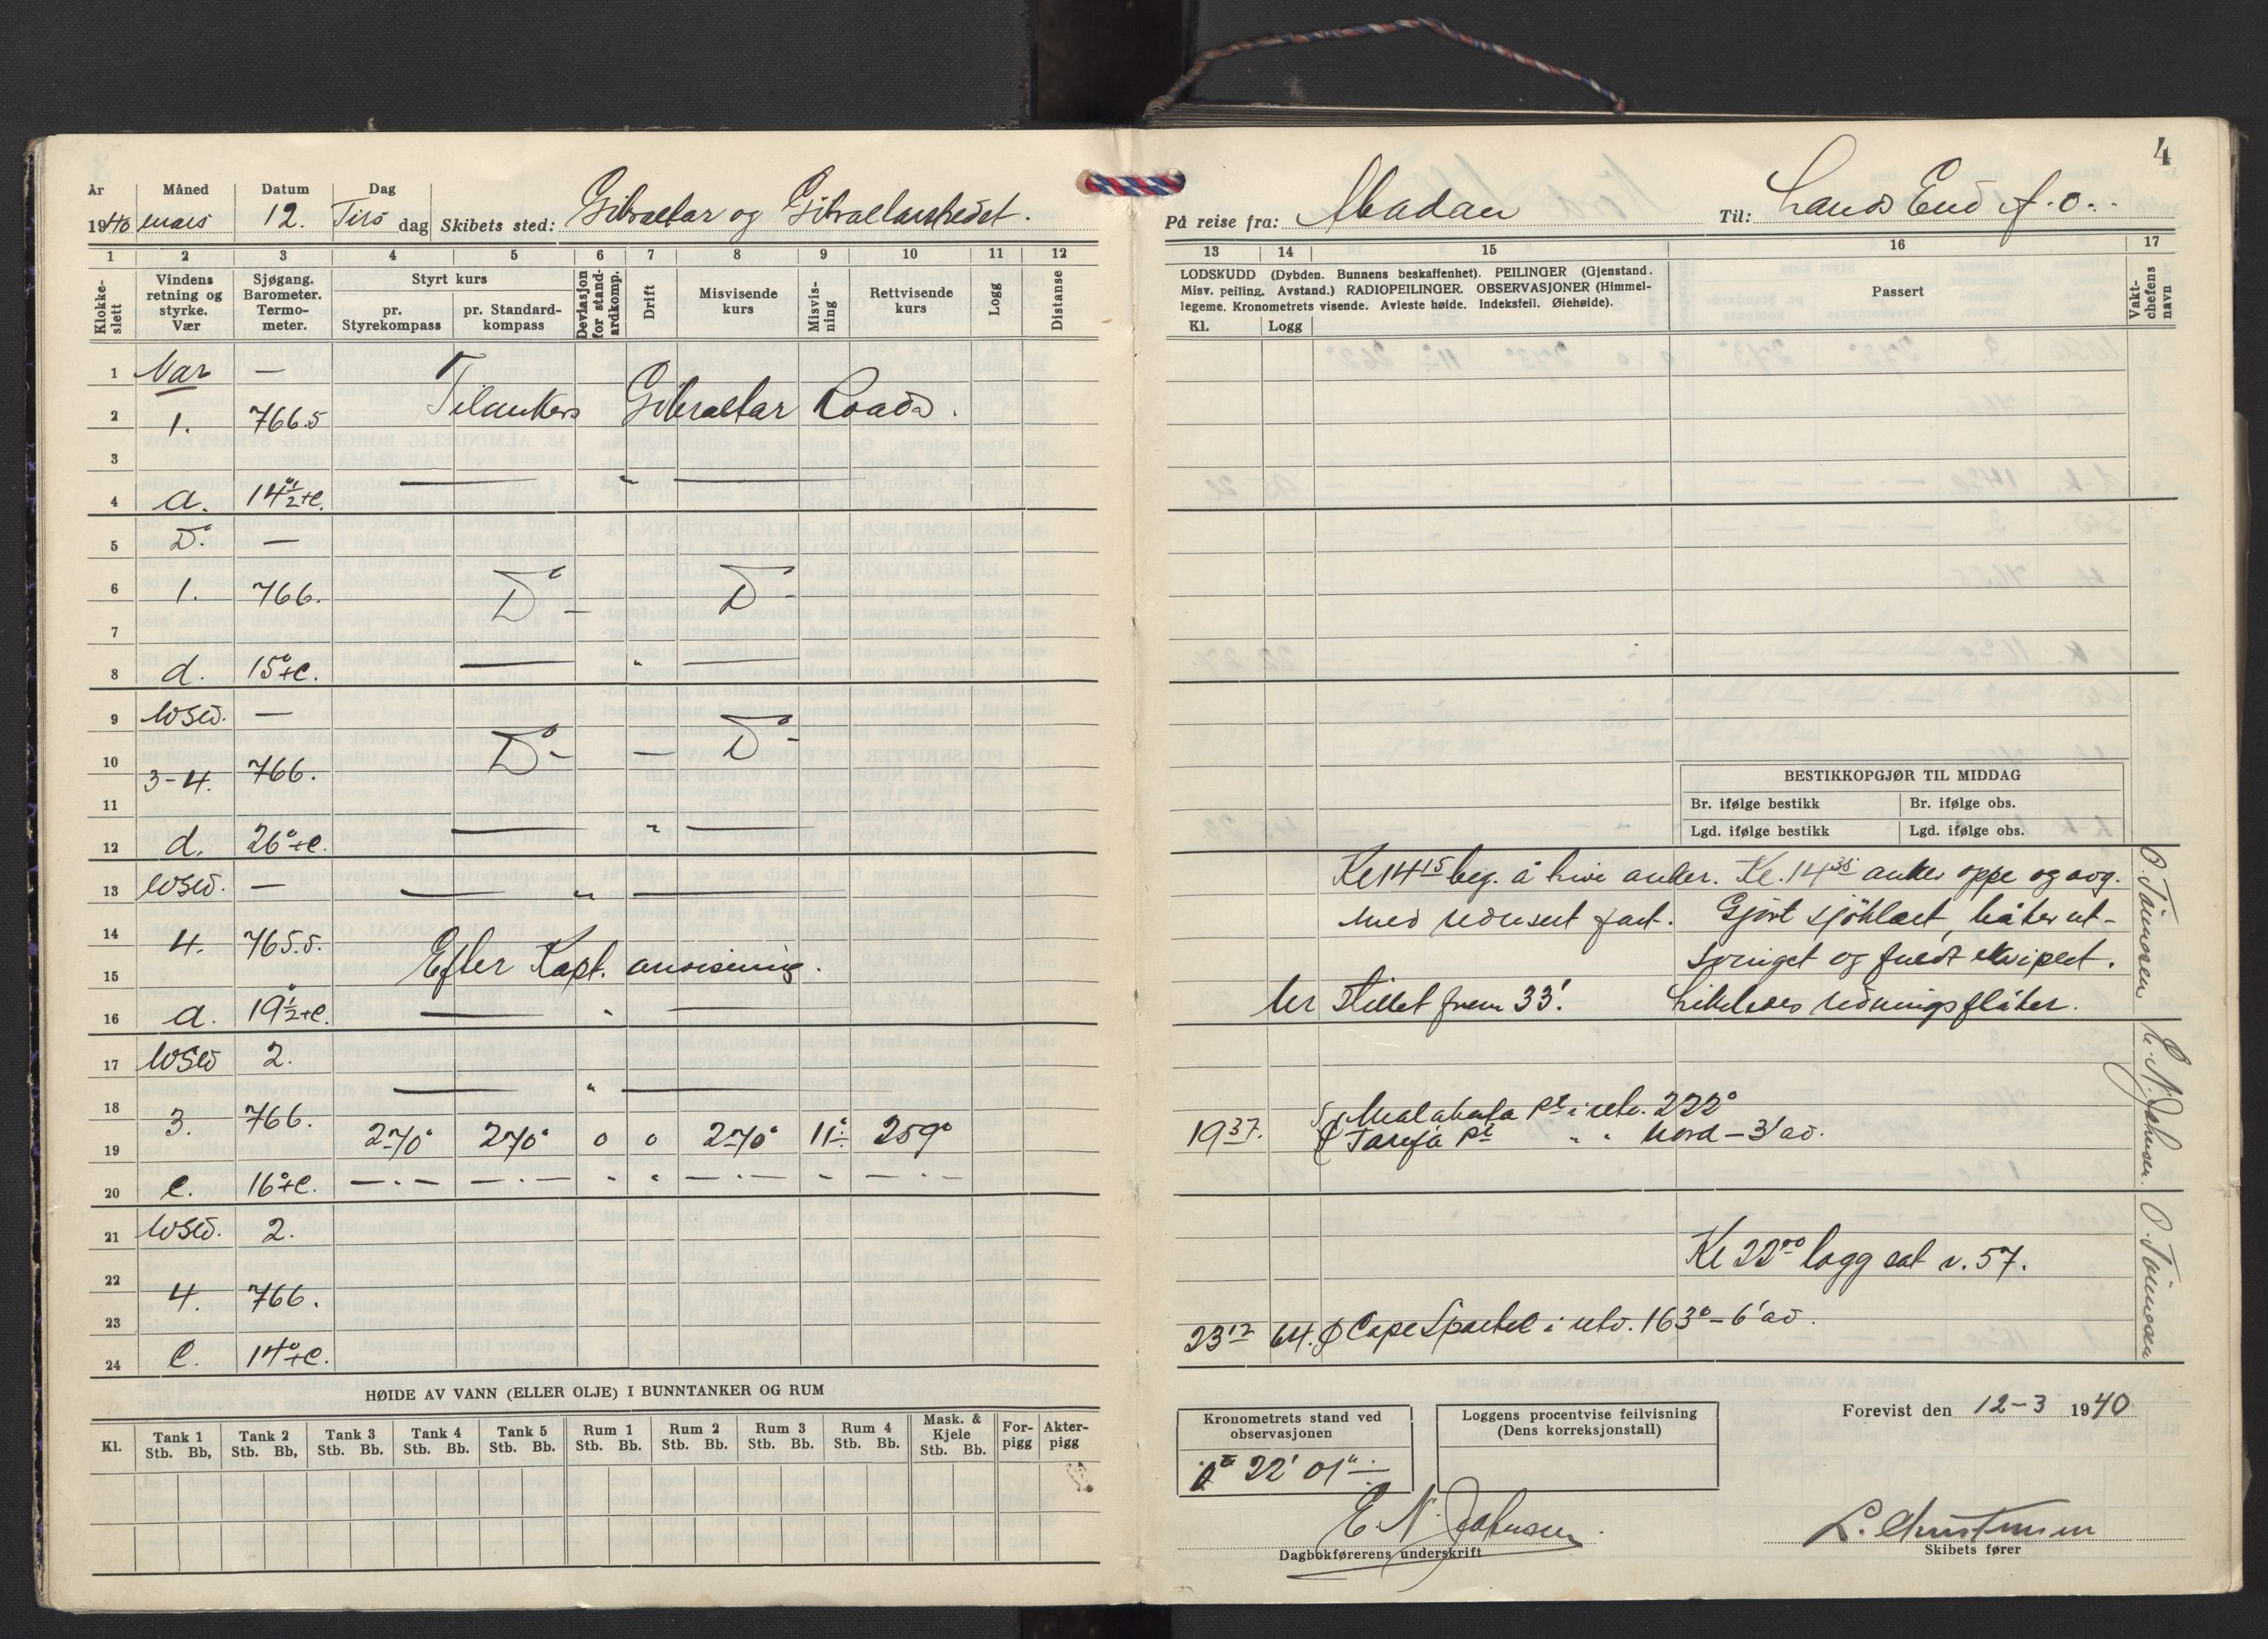 4
År Måned Datum Dag
1940 mars 12. Tirs dag Skibets sted: Gibraltar og Gibraltarstredet.
På reise fra: Abadan Til: Lands End f.o.
1 2 3 4 5 6 7 8 9 10 11 12
Klokke-slett
Vindens retning og styrke. Vær
Sjøgang. Barometer. Termo-meter.
Styrt kurs
pr. Styrekompass
pr. Standard-kompass
Deviasjon for stand-ardkomp.
Drift
Misvisende kurs
Misvis-ning
Rettvisende kurs
Logg
Distanse
1 Var —
2 1. 766.5 Tilankers Gibraltar Roads.
3
4 d. 14½°+C. — " —
5 D°. —
6 1. 766. D°- D°-
7
8 d. 15°+C. — " —
9 WSW. —
10 3-4. 766. D°- — D°-
11
12 d. 26°+C. — " —
13 WSW. — — " —
14 4. 765.5. Efter Kapt. anvisning.
15
16 d. 19½°+C. — " —
17 WSW 2.
18 3. 766. — " —
19 270° 270° 0 0 270° 11°÷ 259°
20 C. 16°+C. —·— —·— " " —·— " —·—
21 WSW. 2.
22 4. 766.
23
24 C. 14°+C.
HØIDE AV VANN (ELLER OLJE) I BUNNTANKER OG RUM
Kl. Tank 1 Tank 2 Tank 3 Tank 4 Tank 5 Rum 1 Rum 2 Rum 3 Rum 4 Mask. & Kjele For-pigg Akter-pigg
Stb. Bb, Stb. Bb, Stb. Bb. Stb. Bb. Stb. Bb. Stb. Bb. Stb. Bb. Stb. Bb. Stb. Bb. Stb. Bb.
13 14 15 16 17
LODSKUDD (Dybden. Bunnens beskaffenhet). PEILINGER (Gjenstand.
Misv. peiling. Avstand.) RADIOPEILINGER. OBSERVASJONER (Himmel-
legeme. Kronometrets visende. Avleste høide. Indeksfeil. Øiehøide).
Kl. Logg
Passert
Vakt-chefens navn
BESTIKKOPGJØR TIL MIDDAG
Br. ifølge bestikk Br. ifølge obs.
Lgd. ifølge bestikk Lgd. ifølge obs.
Kl 14 15 beg. å hive anker. Kl. 14 35 anker oppe og avg.
med redusert fart. Gjort sjöklart, båter ut-
svinget og fuldt ekvipert.
Ur stillet frem 33'. Likeledes redningsflåter.
Malabata Pt i retv. 222°
19 37. Tarifa Pt " " Nord – 3' av.
Kl 22 00 logg sat v. 57.
23 12 64. Cape Spartel i retv. 163° – 6' av.
E. N. Johnsen.
Kronometrets stand ved observasjonen
22' 01"
Loggens procentvise feilvisning
(Dens korreksjonstall)
Forevist den 12-3 1940
E. N. Johnsen
Dagbokførerens underskrift
L. Christensen
Skibets fører